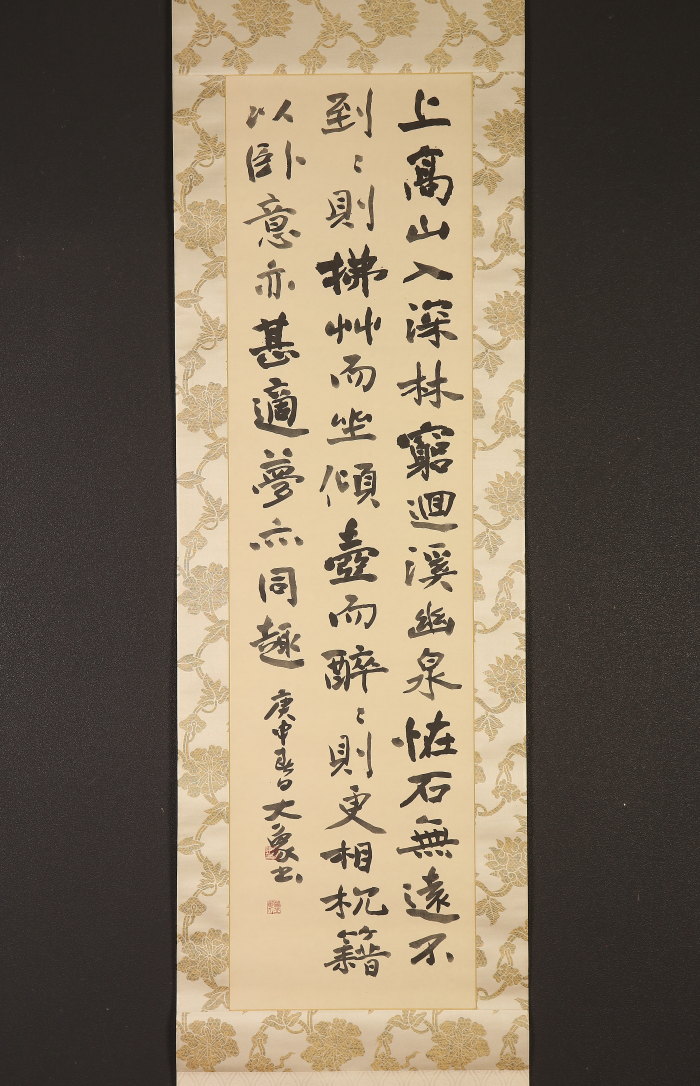 上高山入深林窮迴溪幽泉恠石無遠不
到〻則拂艸而坐傾壺而醉〻則更相枕籍
以臥意亦甚適夢亦同趣
庚申春日大象書